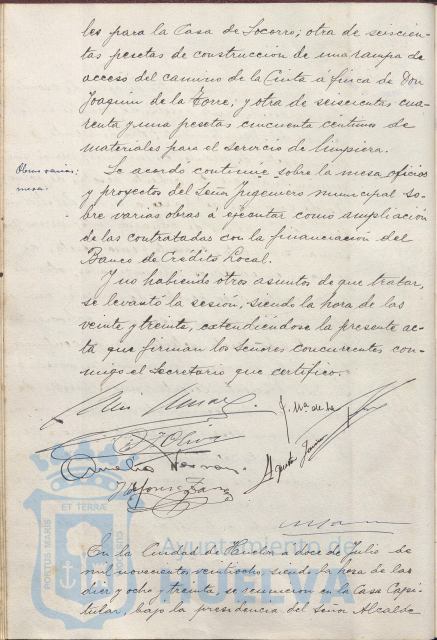 les para la Casa de Socorro; otra de seiscien-
tas pesetas de construccion de una rampa de
acceso del camino de la Cinta á finca de Don
Joaquin de la Torre; y otra de seiscientas cua-
renta y una pesetas cincuenta centimos de
materiales para el servicio de limpieza.
Obras varias:
mesa.
Se acordó continúe sobre la mesa oficios
y proyectos del Señor Ingeniero municipal so-
bre varias obras á ejecutar como ampliacion
de las contratadas con la financiacion del
Banco de Crédito Local.
Y no habiendo otros asuntos de que tratar,
se levantó la sesión, siendo la hora de las
veinte y treinta, extendiéndose la presente ac-
ta que firman los Señores concurrentes con-
migo el Secretario que certifico.
J. Mª de la
En la Ciudad de Huelva a doce de Julio de
mil novecientos veintiocho, siendo la hora de las
diez y ocho y treinta, se reunieron en la Casa Capi-
tular, bajo la presidencia del Señor Alcalde
Ayuntamiento de
HUELVA
PORTUS MARIS
ET TERRÆ
CUSTODIA